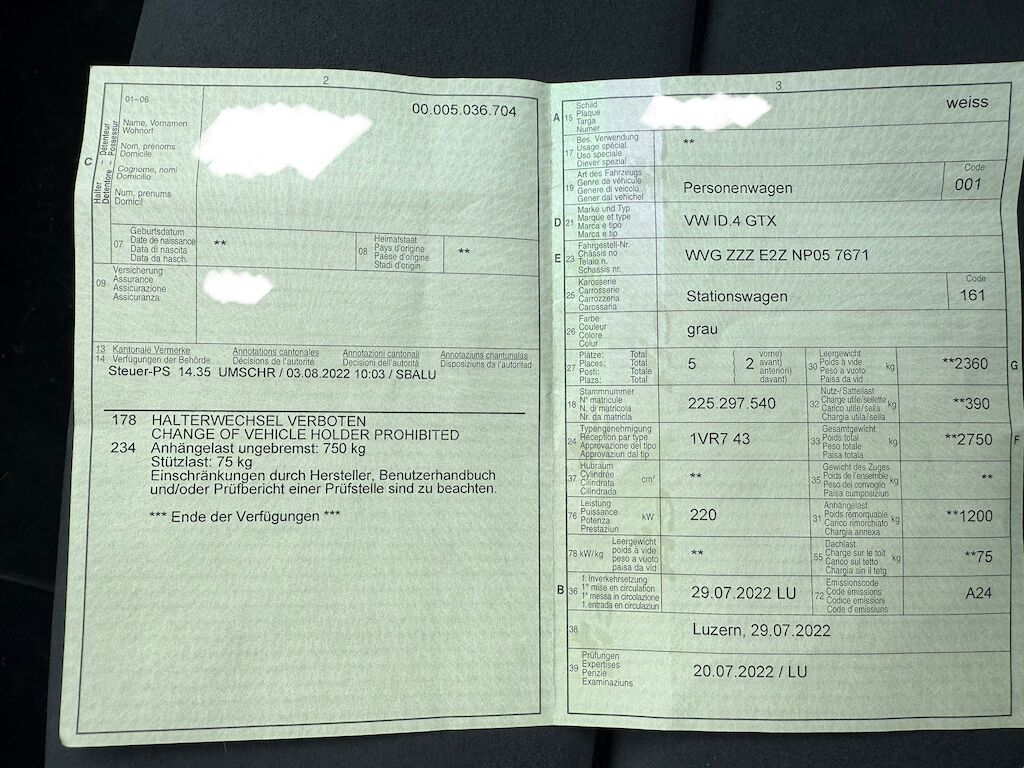 2
01-06
00.005.036.704
C
Halter
Detentore
Détenteur
Possessur
Name, Vornamen
Wohnort
Nom, prénoms
Domicile
Cognome, nomi
Domicilio
Num, prenums
Domicil
07
Geburtsdatum
Date de naissance
Data di nascita
Data da nasch.
**
08
Heimatstaat
Pays d'origine
Paese d'origine
Stadi d'origin
**
09
Versicherung
Assurance
Assicurazione
Assicuranza
13 Kantonale Vermerke Annotations cantonales Annotazioni cantonali Annotaziuns chantunalas
14 Verfügungen der Behörde Décisions de l'autorité Decisioni dell'autorità Disposiziuns da l'autoritad
Steuer-PS 14.35 UMSCHR / 03.08.2022 10:03 / SBALU
178 HALTERWECHSEL VERBOTEN
CHANGE OF VEHICLE HOLDER PROHIBITED
234 Anhängelast ungebremst: 750 kg
Stützlast: 75 kg
Einschränkungen durch Hersteller, Benutzerhandbuch
und/oder Prüfbericht einer Prüfstelle sind zu beachten.
*** Ende der Verfügungen ***
3
A 15
Schild
Plaque
Targa
Numer
weiss
17
Bes. Verwendung
Usage spécial
Uso speciale
Diever spezial
**
19
Art des Fahrzeugs
Genre de véhicule
Genere di veicolo
Gener dal vehichel
Personenwagen
Code
001
D 21
Marke und Typ
Marque et type
Marca e tipo
Marca e tip
VW ID.4 GTX
E 23
Fahrgestell-Nr.
Châssis no
Telaio n.
Schassis nr.
WVG ZZZ E2Z NP05 7671
25
Karosserie
Carrosserie
Carrozzeria
Carossaria
Stationswagen
Code
161
26
Farbe
Couleur
Colore
Colur
grau
27
Plätze: Total
Places: Total
Posti: Totale
Plazs: Total
5
2
vorne)
avant)
anteriori)
davant)
30
Leergewicht
Poids à vide
Peso a vuoto
Paisa da vid
kg
**2360
G
18
Stammnummer
N° matricule
N. di matricola
Nr. da matricla
225.297.540
32
Nutz-/Sattellast
Charge utile/sellette
Carico utile/sella
Chargia utila/sella
kg
**390
24
Typengenehmigung
Réception par type
Approvazione del tipo
Approvaziun dal tip
1VR7 43
33
Gesamtgewicht
Poids total
Peso totale
Paisa totala
kg
**2750
F
37
Hubraum
Cylindrée
Cilindrata
Cilindrada
cm³
**
35
Gewicht des Zuges
Poids de l'ensemble
Peso del convoglio
Paisa cumposiziun
kg
**
76
Leistung
Puissance
Potenza
Prestaziun
kW
220
31
Anhängelast
Poids remorquable
Carico rimorchiato
Chargia annexa
kg
**1200
78 kW/kg
Leergewicht
poids à vide
peso a vuoto
paisa da vid
**
55
Dachlast
Charge sur le toit
Carico sul tetto
Chargia sin il tetg
kg
**75
B 36
1. Inverkehrsetzung
1re mise en circulation
1a messa in circolazione
1. entrada en circulaziun
29.07.2022 LU
72
Emissionscode
Code émissions
Codice emissioni
Code d'emissiuns
A24
38
Luzern, 29.07.2022
39
Prüfungen
Expertises
Perizie
Examinaziuns
20.07.2022 / LU